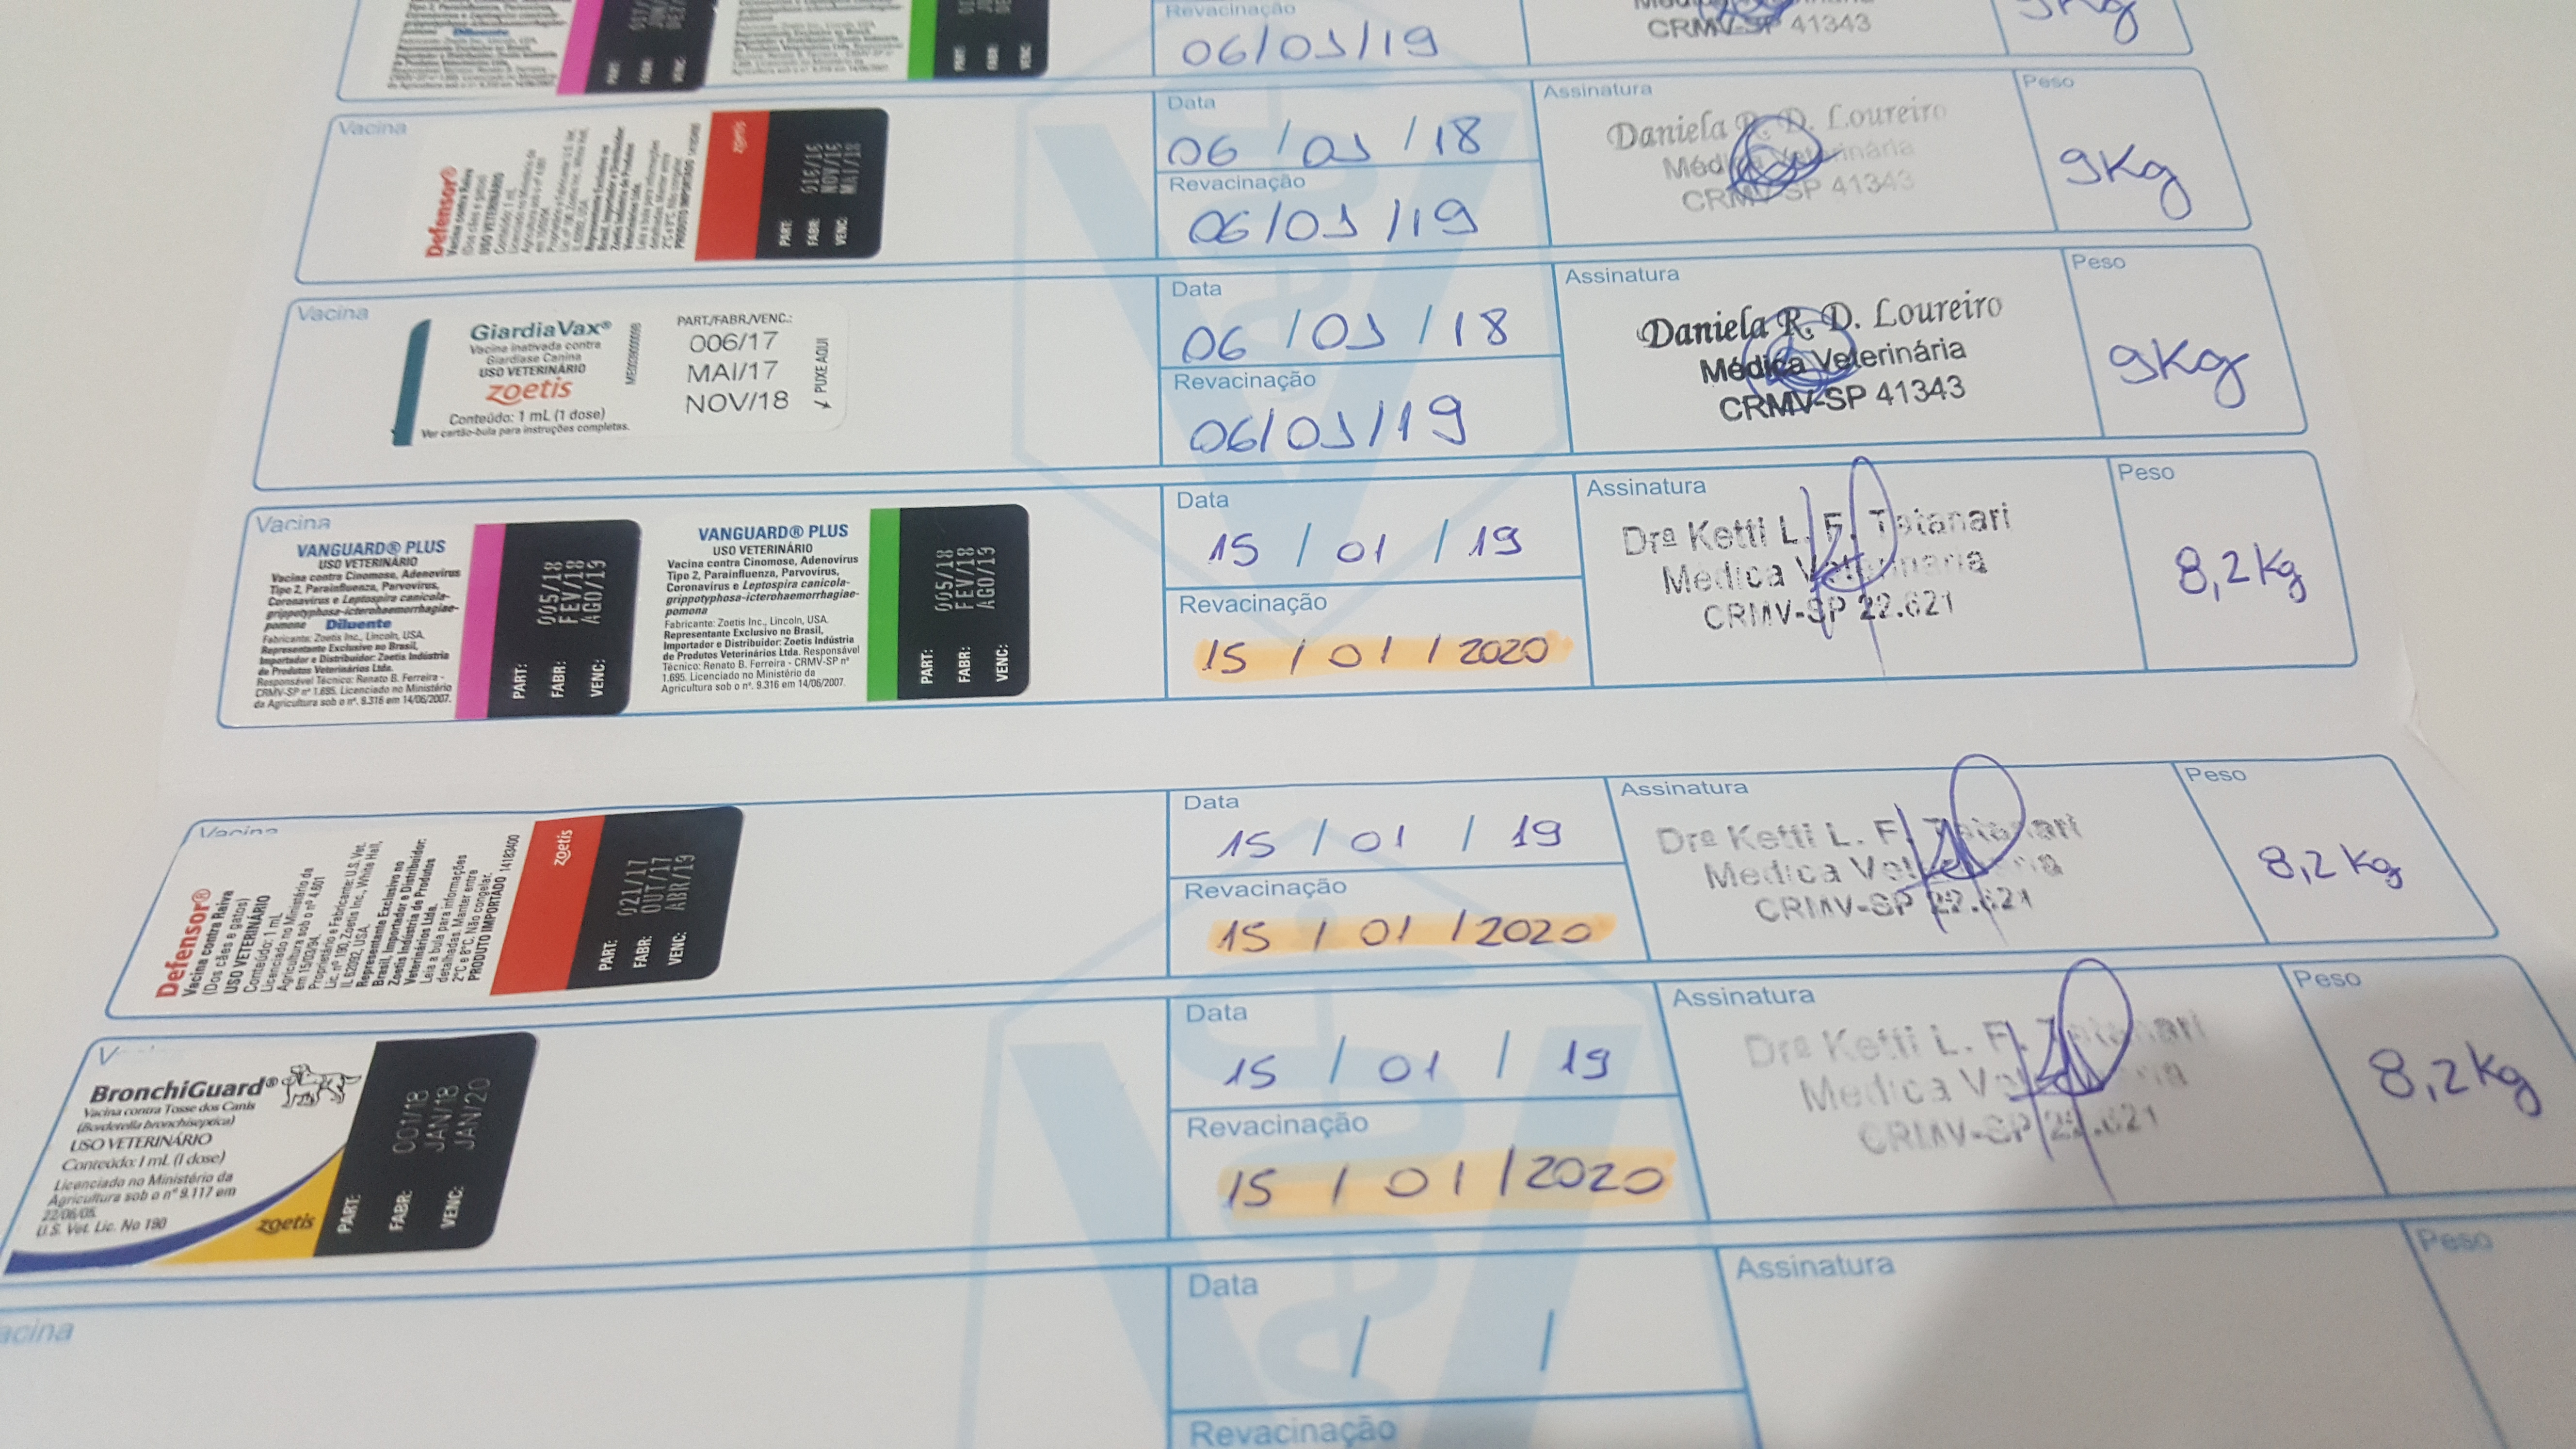 Revacinação
06/01/19
CRMV-SP 41343
9Kg
Vacina
Defensor®
Vacina contra Raiva
(Dos cães e gatos)
USO VETERINÁRIO
Conteúdo: 1 mL
zoetis
PART: 016/16
FABR: NOV/16
VENC: MAI/18
Data
06/01/18
Revacinação
06/01/19
Assinatura
Daniela R. D. Loureiro
Médica Veterinária
CRMV-SP 41343
Peso
9Kg
Vacina
GiardiaVax®
Vacina inativada contra
Giardíase Canina
USO VETERINÁRIO
zoetis
Conteúdo: 1 mL (1 dose)
Ver cartão-bula para instruções completas.
PART./FABR./VENC.:
006/17
MAI/17
NOV/18
PUXE AQUI
Data
06/01/18
Revacinação
06/01/19
Assinatura
Daniela R. D. Loureiro
Médica Veterinária
CRMV-SP 41343
Peso
9Kg
Vacina
VANGUARD® PLUS
USO VETERINÁRIO
Vacina contra Cinomose, Adenovirus
Tipo 2, Parainfluenza, Parvovirus,
Coronavirus e Leptospira canicola-
grippotyphosa-icterohaemorrhagiae-
pomona Diluente
Fabricante: Zoetis Inc., Lincoln, USA.
Representante Exclusivo no Brasil,
Importador e Distribuidor: Zoetis Indústria
de Produtos Veterinários Ltda.
Responsável Técnico: Renato B. Ferreira -
CRMV-SP nº 1.695. Licenciado no Ministério
da Agricultura sob o nº. 9.316 em 14/06/2007.
PART: 005/18
FABR: FEV/18
VENC: AGO/19
VANGUARD® PLUS
USO VETERINÁRIO
Vacina contra Cinomose, Adenovirus
Tipo 2, Parainfluenza, Parvovirus,
Coronavirus e Leptospira canicola-
grippotyphosa-icterohaemorrhagiae-
pomona
Fabricante: Zoetis Inc., Lincoln, USA.
Representante Exclusivo no Brasil,
Importador e Distribuidor: Zoetis Indústria
de Produtos Veterinários Ltda. Responsável
Técnico: Renato B. Ferreira - CRMV-SP nº
1.695. Licenciado no Ministério da
Agricultura sob o nº. 9.316 em 14/06/2007.
PART: 005/18
FABR: FEV/18
VENC: AGO/19
Data
15/01/19
Revacinação
15/01/2020
Assinatura
Drª Ketti L. F. Tatanari
Médica Veterinaria
CRMV-SP 22.621
Peso
8,2Kg
Vacina
Defensor®
Vacina contra Raiva
(Dos cães e gatos)
USO VETERINÁRIO
Conteúdo: 1 mL
Licenciado no Ministério da
Agricultura sob o nº 4.601
em 15/03/94.
Proprietário e Fabricante: U.S. Vet.
Lic. nº 190, Zoetis Inc., White Hall,
IL 62092, USA.
Representante Exclusivo no
Brasil, Importador e Distribuidor:
Zoetis Indústria de Produtos
Veterinários Ltda.
Leia a bula para informações
detalhadas. Manter entre
2°C e 8°C. Não congelar.
PRODUTO IMPORTADO 14183400
zoetis
PART: 021/17
FABR: OUT/17
VENC: ABR/19
Data
15/01/19
Revacinação
15/01/2020
Assinatura
Drª Ketti L. F. Tatanari
CRMV-SP 22.621
Peso
8,2Kg
V
BronchiGuard®
Vacina contra Tosse dos Canis
(Bordetella bronchiseptica)
USO VETERINÁRIO
Conteúdo: 1 mL (1 dose)
Licenciado no Ministério da
Agricultura sob o nº 9.117 em
22/06/05.
U.S. Vet. Lic. No 190
zoetis
PART: 001/18
FABR: JAN/18
VENC: JAN/20
Data
15/01/19
Revacinação
15/01/2020
Assinatura
Drª Ketti L. F. Tatanari
CRMV-SP 22.621
Peso
8,2Kg
acina
Data
/ /
Revacinação
Assinatura
Peso